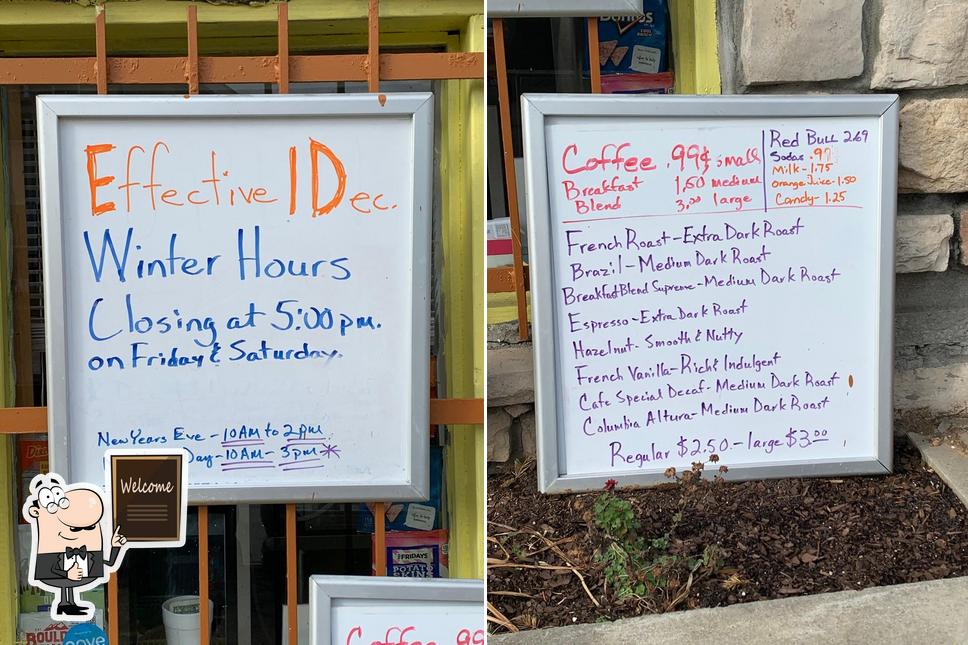 Effective 1 Dec.
Winter Hours
Closing at 5:00 pm.
on Friday & Saturday.
New Years Eve - 10AM to 2PM
Day - 10AM - 3pm *
Welcome
FRIDAYS
POTATO
SKINS
BOULD
Coffee 99
Doritos
Coffee .99¢ small
Breakfast 1.50 medium
Blend 3.00 large
Red Bull 2.69
Sodas .97
Milk - 1.75
Orange Juice - 1.50
Candy - 1.25
French Roast - Extra Dark Roast
Brazil - Medium Dark Roast
Breakfast Blend Supreme - Medium Dark Roast
Espresso - Extra Dark Roast
Hazelnut - Smooth & Nutty
French Vanilla - Rich & Indulgent
Cafe Special Decaf - Medium Dark Roast
Columbia Altura - Medium Dark Roast
Regular $2.50 - large $3.00